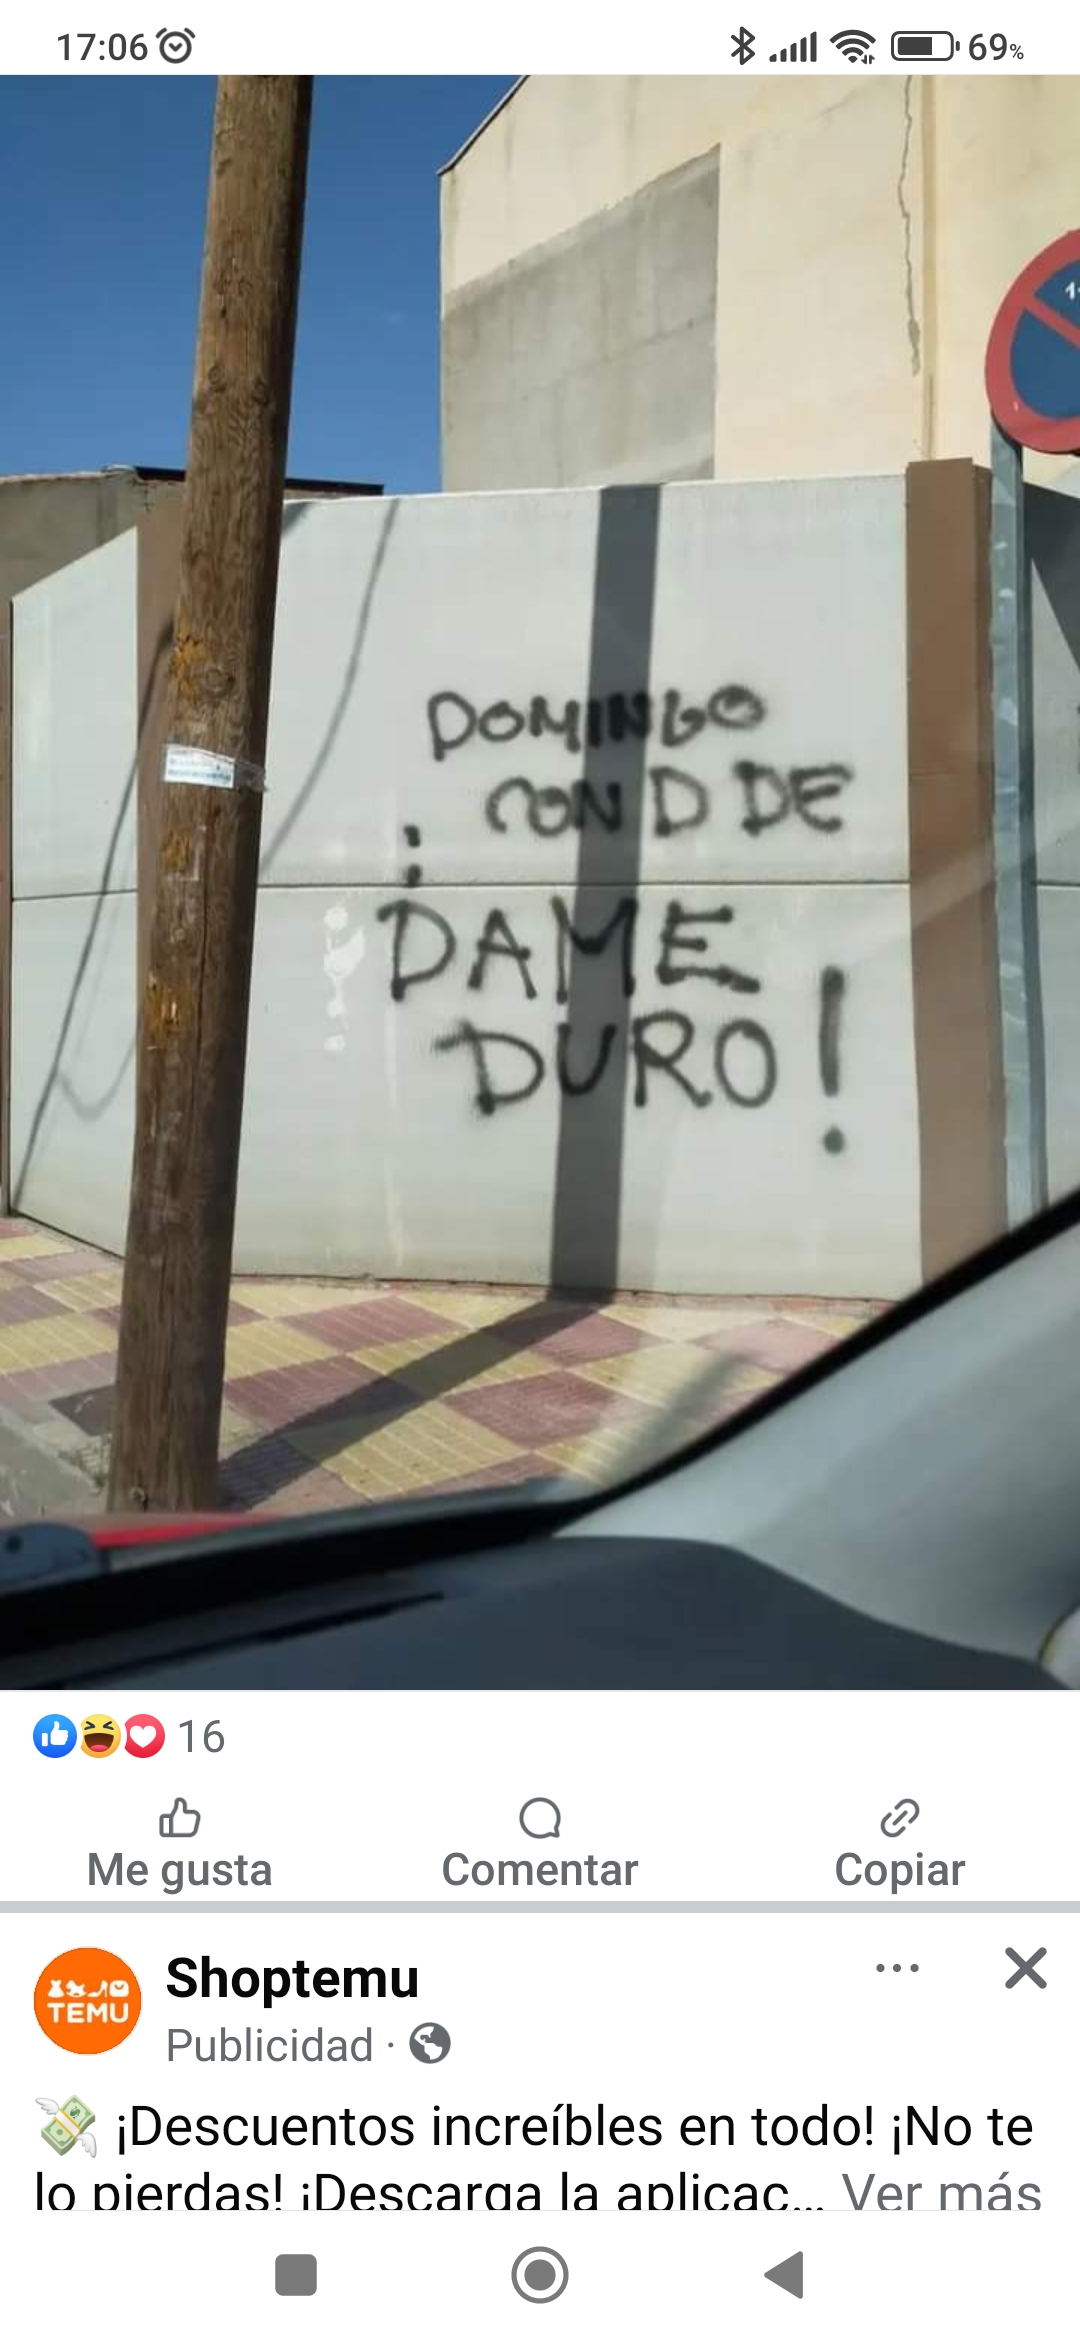 17:06
69%
1-
DOMINGO
CON D DE
¡DAME
DURO!
16
Me gusta
Comentar
Copiar
TEMU
Shoptemu
Publicidad ·
¡Descuentos increíbles en todo! ¡No te
lo pierdas! ¡Descarga la aplicac... Ver más